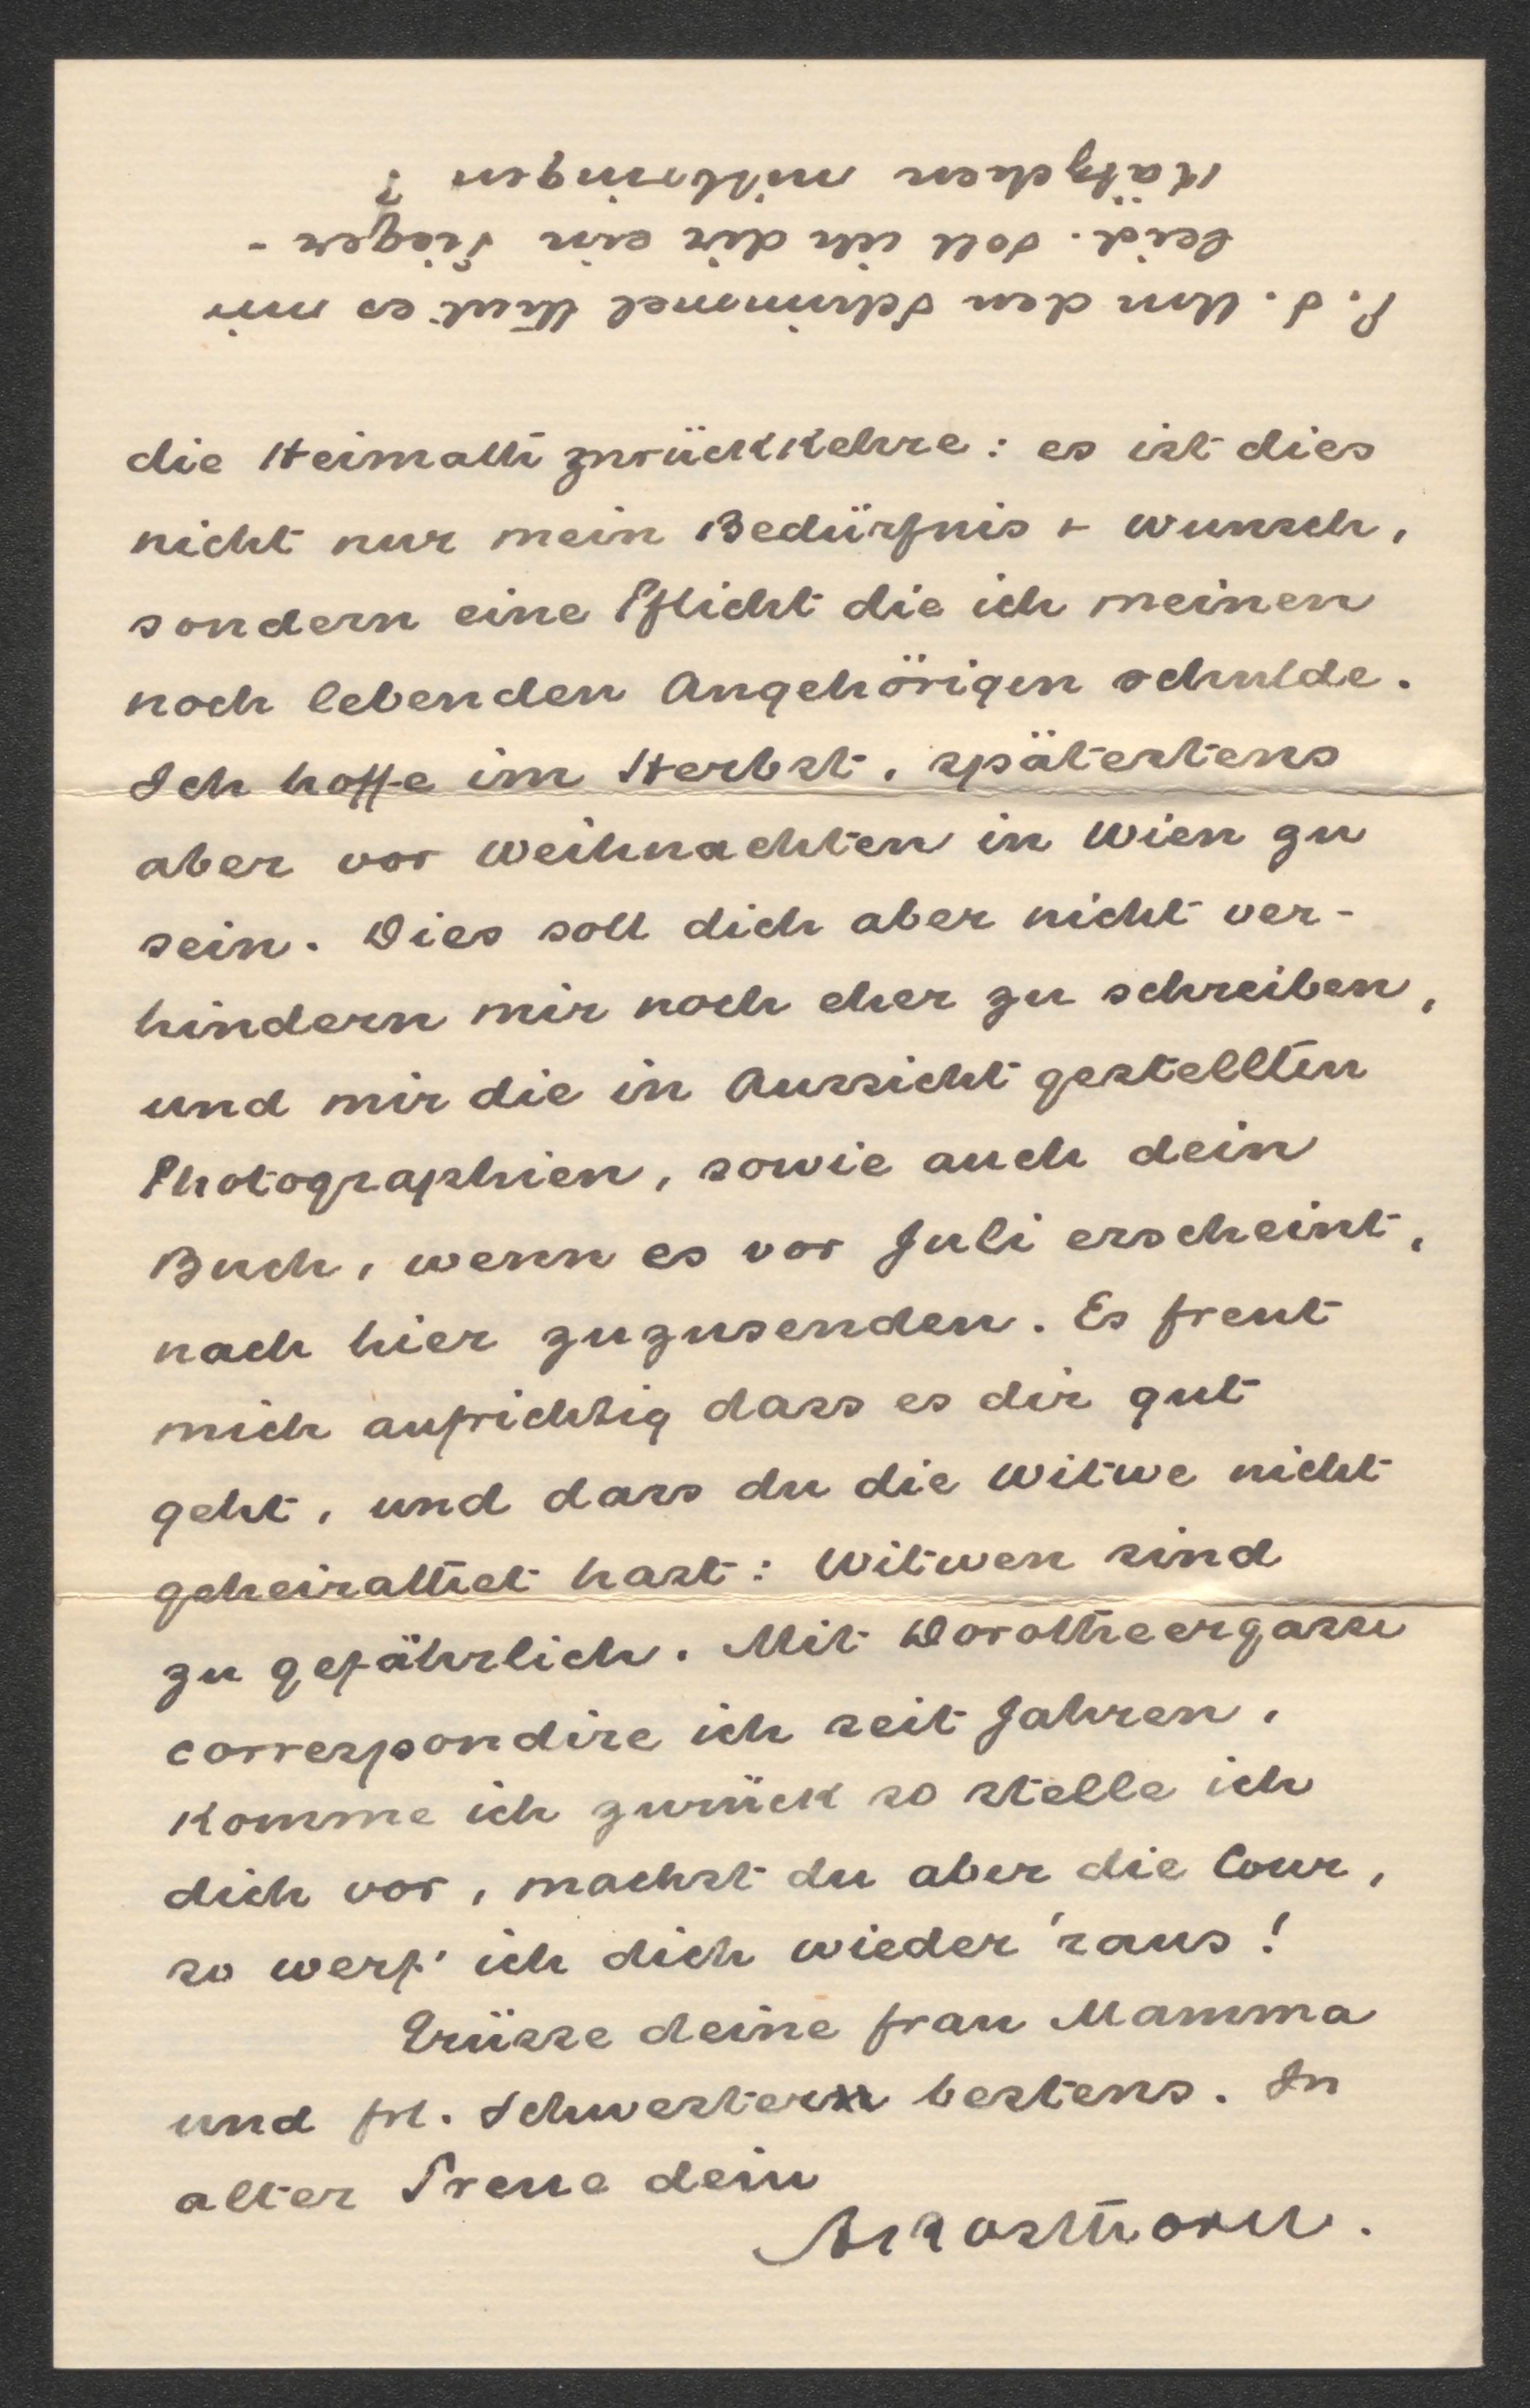 die Heimath zurückkehre: es ist dies
nicht nur mein Bedürfnis + Wunsch,
sondern eine Pflicht die ich meinen
noch lebenden Angehörigen schulde.
Ich hoffe im Herbst, spätestens
aber vor Weihnachten in Wien zu
sein. Dies soll dich aber nicht ver-
hindern mir noch eher zu schreiben,
und mir die in Aussicht gestellten
Photographien, sowie auch dein
Buch, wenn es vor Juli erscheint,
nach hier zuzusenden. Es freut
mich aufrichtig dass es dir gut
geht, und dass du die Witwe nicht
geheirathet hast: Witwen sind
zu gefährlich. Mit Dorotheergasse
correspondire ich seit Jahren,
komme ich zurück so stelle ich
dich vor, machst du aber die Cour,
so werf' ich dich wieder 'raus!
Grüsse deine frau Mamma
und frl. Schwester bestens. In
alter Treue dein
ARosthorn.
P.S. Um den Schimmel thut es mir
leid. Soll ich dir ein Tiger-
Kätzchen mitbringen?